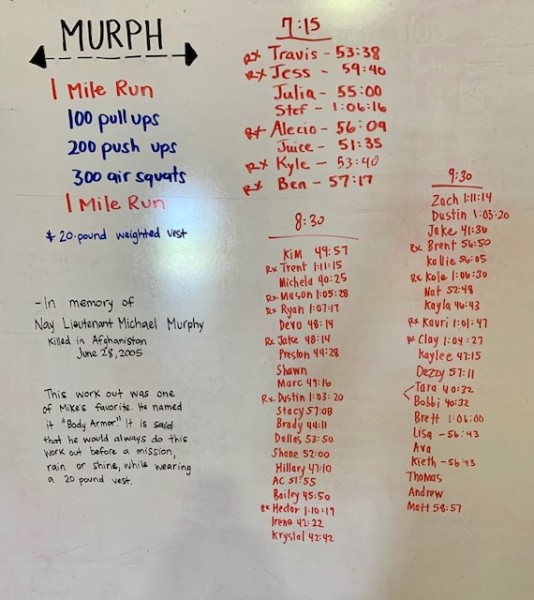 MURPH
1 Mile Run
100 pull ups
200 push ups
300 air squats
1 Mile Run
* 20 pound weighted vest
- In memory of
Navy Lieutenant Michael Murphy
Killed in Afghanistan
June 28, 2005
This work out was one
of Mike's favorite. He named
it "Body Armor." It is said
that he would always do this
work out before a mission,
rain or shine, while wearing
a 20 pound vest.
7:15
Rx Travis - 53:38
Rx Jess - 59:40
Julia - 55:00
Stef - 1:06:16
Rx Alecio - 56:09
Juice - 51:35
Rx Kyle - 53:40
Rx Ben - 57:17
8:30
Kim 49:57
Rx Trent 1:11:15
Michela 40:25
Rx Mason 1:05:28
Rx Ryan 1:07:17
Devo 48:14
Rx Jake 48:14
Preston 44:28
Shawn
Marc 49:16
Rx Dustin 1:03:20
Stacy 57:08
Brady 44:11
Dallas 53:50
Shane 52:00
Hillary 47:10
AC 51:55
Bailey 45:50
Rx Hector 1:10:19
Irene 42:22
Krystal 42:42
9:30
Zach 1:11:14
Dustin 1:03:20
Jake 41:36
Rx Brent 56:50
Kallie 56:05
Rx Kole 1:06:30
Nat 52:48
Kayla 46:43
Rx Kauri 1:01:47
Rx Clay 1:04:27
Kaylee 47:15
Dezzy 57:11
Tara 40:32
Bobbi 40:32
Brett 1:06:00
Lisa - 56:43
Ava
Kieth - 56:43
Thomas
Andrew
Matt 58:57